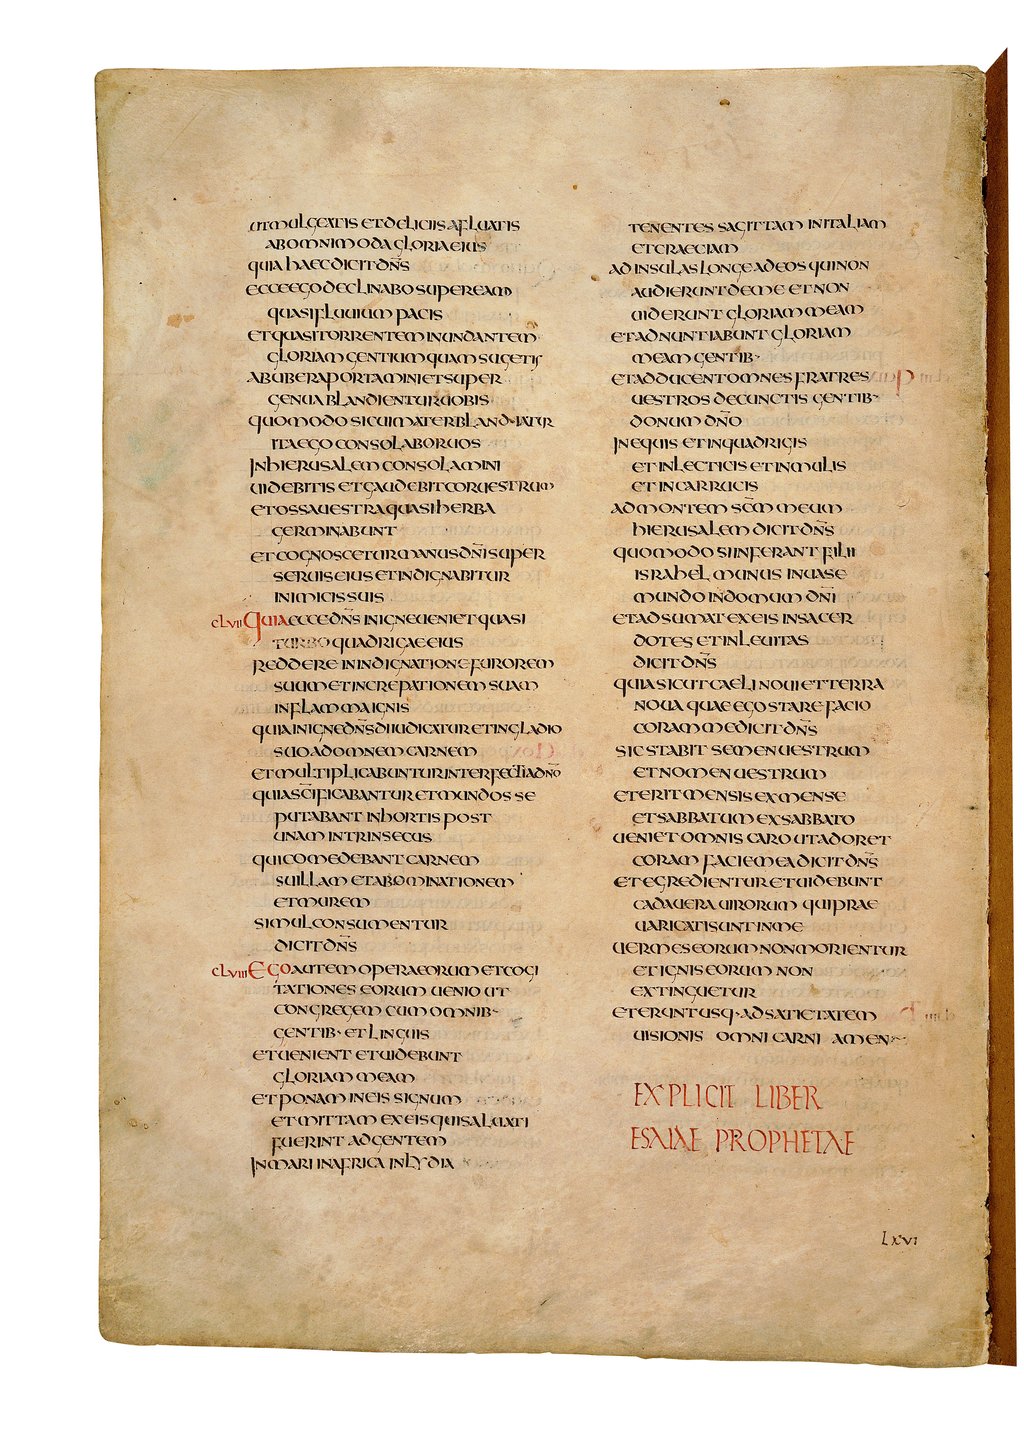 ut mulgeatis et deliciis afluatis
ab omnimoda gloria eius
quia haec dicit dn̄s
ecce ego declinabo super eam
quasi fluuium pacis
et quasi torrentem inundantem
gloriam gentium quam sugetis
ab ubera portamini et super
genua blandientur uobis
quomodo si cui mater blandiatur
ita ego consolabor uos
in hierusalem consolamini
uidebitis et gaudebit cor uestrum
et ossa uestra quasi herba
germinabunt
et cognoscetur manus dn̄i super
seruis eius et indignabitur
inimicis suis
clvii quia ecce dn̄s in igne ueniet quasi
turbo quadrigae eius
reddere in indignatione furorem
suum et increpationem suam
in flamma ignis
quia in igne dn̄s diiudicatur et in gladio
suo ad omnem carnem
et multiplicabuntur interfecti a dn̄o
qui sc̄ificabantur et mundos se
putabant in hortis post
unam intrinsecus
qui comedebant carnem
suillam et abominationem
et murem
simul consumentur
dicit dn̄s
clviii Ego autem opera eorum et cogi
tationes eorum uenio ut
congregem cum omnib·
gentib· et linguis
et uenient et uidebunt
gloriam meam
et ponam in eis signum
et mittam ex eis qui saluati
fuerint ad gentem
in mari in africa in lydia
tenentes sagittam in italiam
et graeciam
ad insulas longe ad eos qui non
audierunt de me et non
uiderunt gloriam meam
et adnuntiabunt gloriam
meam gentib·
et adducent omnes fratres
uestros de cunctis gentib·
donum dn̄o
in equis et in quadrigis
et in lecticis et in mulis
et in carrucis
ad montem sc̄m meum
hierusalem dicit dn̄s
quomodo si inferant filii
israhel munus in uase
mundo in domum dn̄i
et adsumat ex eis in sacer
dotes et in leuitas
dicit dn̄s
quia sicut caeli noui et terra
noua quae ego stare facio
coram me dicit dn̄s
sic stabit semen uestrum
et nomen uestrum
et erit mensis ex mense
et sabbatum ex sabbato
ueniet omnis caro ut adoret
coram faciem ea dicit dn̄s
et egredientur et uidebunt
cadauera uirorum qui prae
uaricati sunt in me
uermes eorum non morientur
et ignis eorum non
extinguetur
et erunt usq· ad satietatem
uisionis omni carni amen
EXPLICIT LIBER
ESAIAE PROPHETAE
lxvi